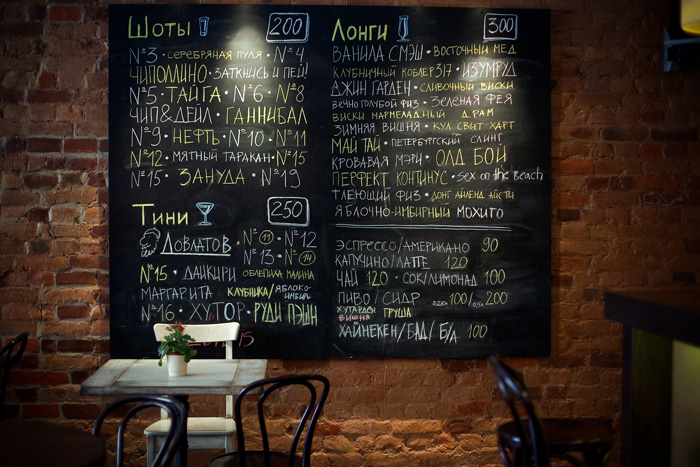 Шоты 200
№3 · СЕРЕБРЯНАЯ ПУЛЯ · №4
ЧИПОЛЛИНО · ЗАТКНИСЬ И ПЕЙ!
№5 · ТАЙГА · №6 · №8
ЧИП&ДЕЙЛ · ГАННИБАЛ
№9 · НЕФТЬ · №10 · №11
№12 · МЯТНЫЙ ТАРАКАН · №15
№15 · ЗАНУДА · №19
Тини 250
ДОВЛАТОВ · №11 · №12
№13 · №14
№15 · ДАЙКИРИ ОБЛЕПИХА МАЛИНА
МАРГАРИТА КЛУБНИКА/ЯБЛОКО-ИМБИРЬ
№16 · ХУТОР · РУДИ ПЭШН
Лонги 300
ВАНИЛА СМЭШ · ВОСТОЧНЫЙ МЕД
КЛУБНИЧНЫЙ КОБЛЕР 317 · ИЗУМРУД
ДЖИН ГАРДЕН · СЛИВОЧНЫЙ ВИСКИ
ВЕЧНО ГОЛУБОЙ ФИЗ · ЗЕЛЕНАЯ ФЕЯ
ВИСКИ МАРМЕЛАДНЫЙ ДРАМ
ЗИМНЯЯ ВИШНЯ · КУЛ СВИТ ХАРТ
МАЙ ТАЙ · ПЕТЕРБУРГСКИЙ СЛИНГ
КРОВАВАЯ МЭРИ · ОЛД БОЙ
ПЕРФЕКТ КОНТИНУС · SEX ON THE BEACH
ТЛЕЮЩИЙ ФИЗ · ЛОНГ АЙЛЕНД АЙСТИ
ЯБЛОЧНО-ИМБИРНЫЙ МОХИТО
ЭСПРЕССО/АМЕРИКАНО 90
КАПУЧИНО/ЛАТТЕ 120
ЧАЙ 120 · СОК/ЛИМОНАД 100
ПИВО/СИДР 100/0.5 200
ХУГАРДЕН ГРУША
ВИШНЯ
ХАЙНЕКЕН/БАД/Б/А 100